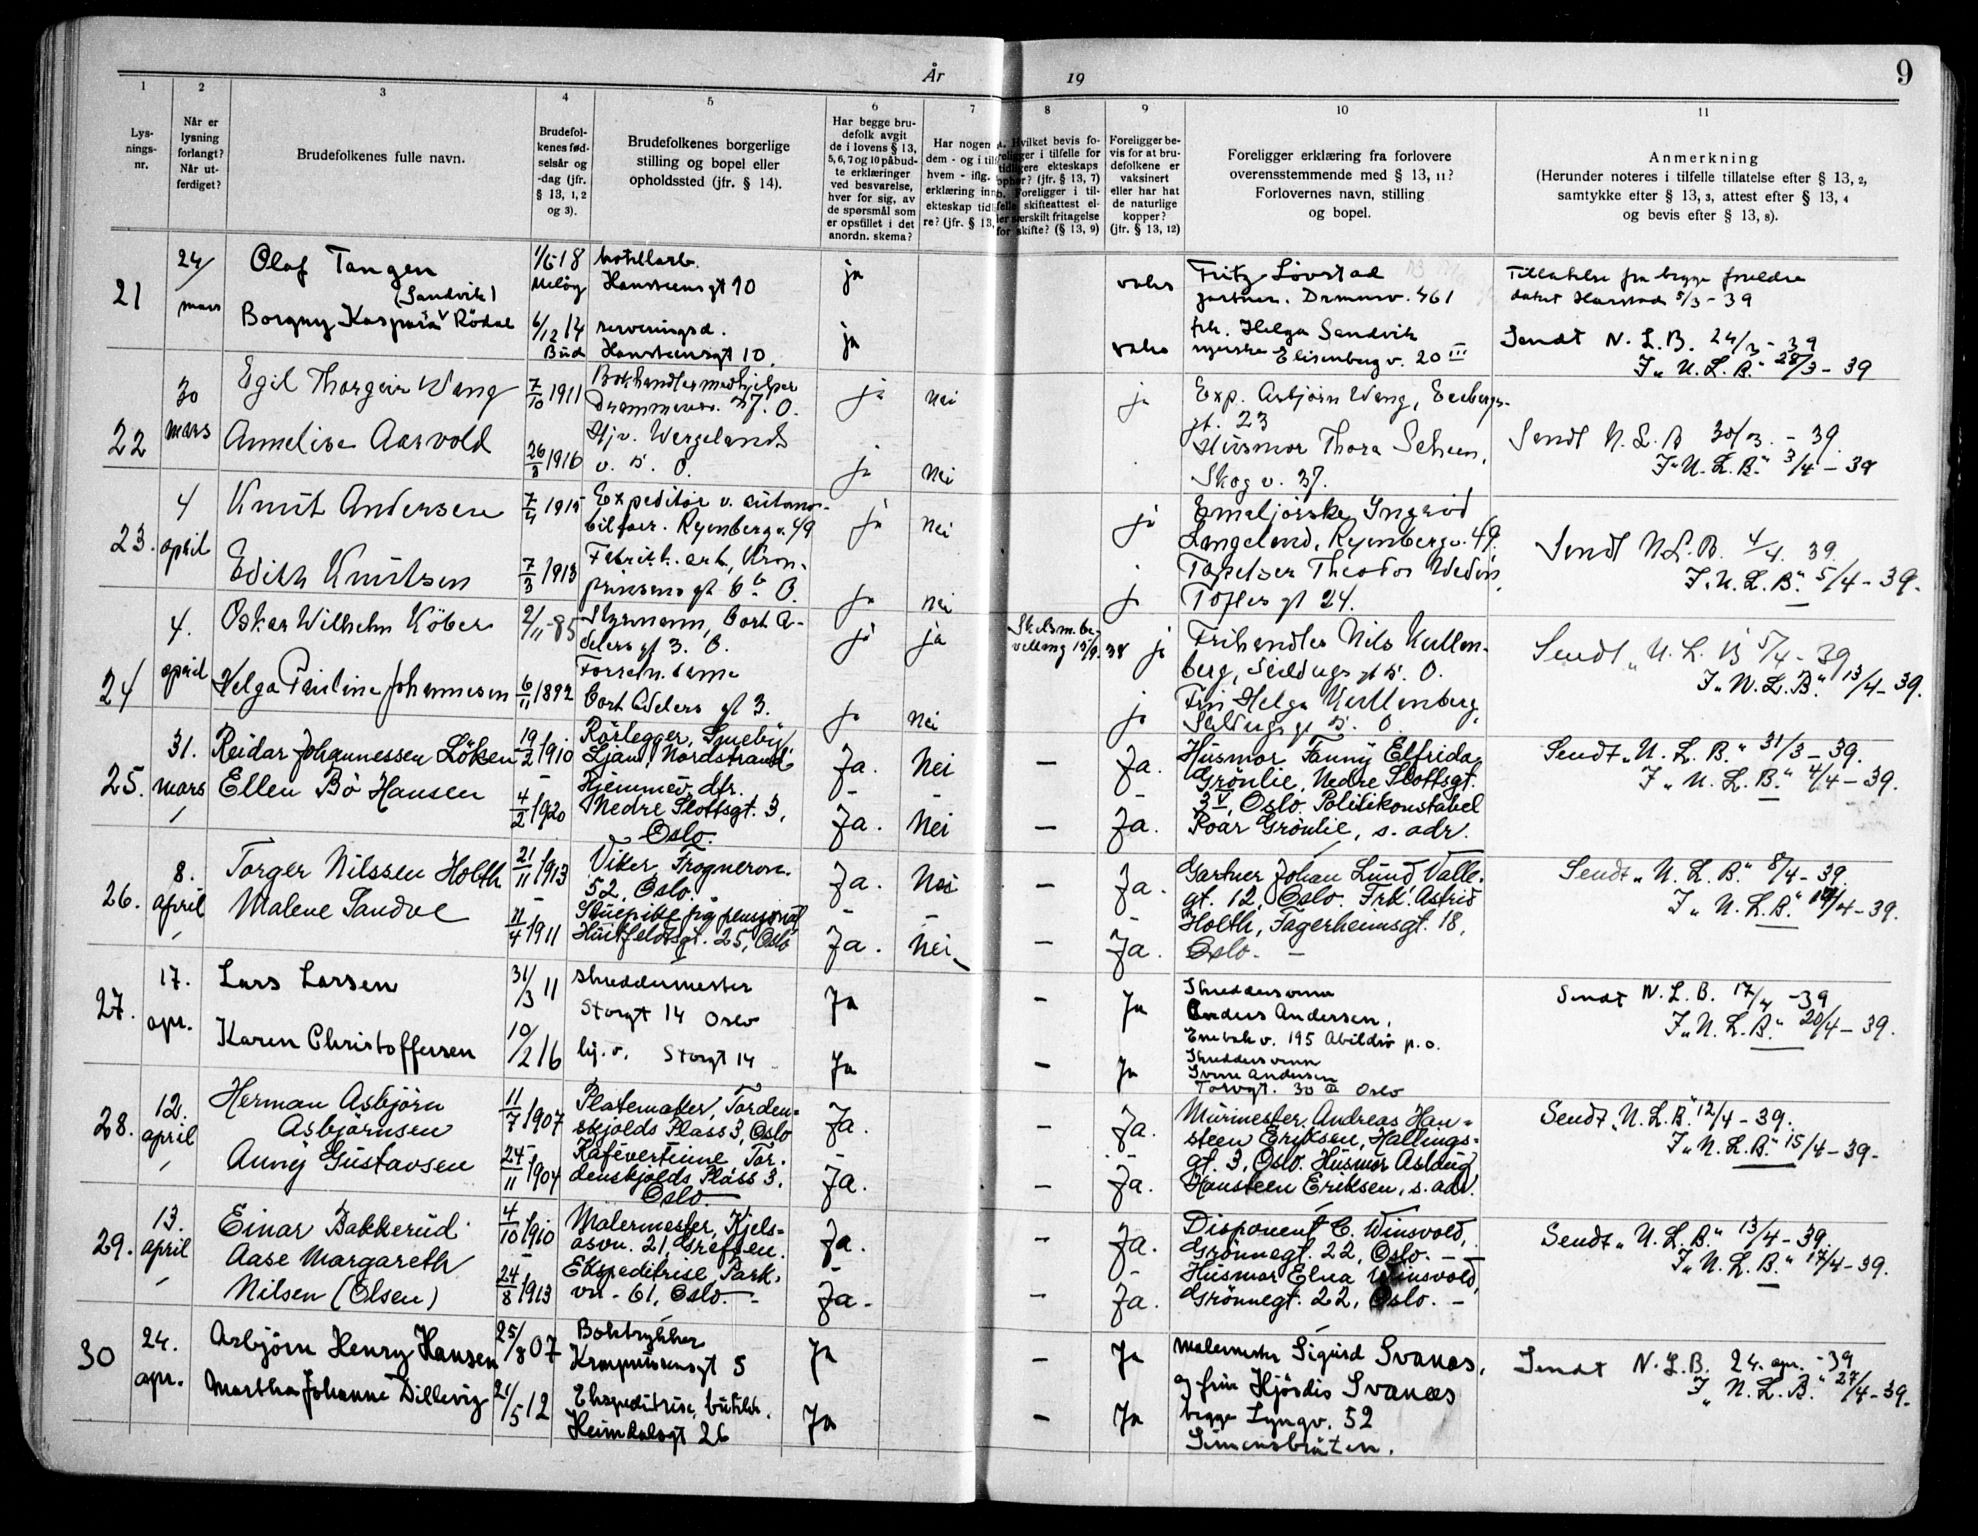 År 19
9
1 2 3 4 5 6 7 8 9 10 11
Lys-
nings-
nr.
Når er
lysning
forlangt?
Når ut-
ferdiget?
Brudefolkenes fulle navn.
Brudefol-
kenes fød-
selsår og
-dag (jfr.
§ 13, 1, 2
og 3).
Brudefolkenes borgerlige
stilling og bopel eller
opholdssted (jfr. § 14).
Har begge bru-
defolk avgit
de i lovens § 13,
5, 6, 7 og 10 påbud-
te erklæringer
ved besvarelse,
hver for sig, av
de spørsmål som
er opstillet i det
anordn. skema?
Har nogen a
dem - og i til
hvem - iflg.
erklæring inn
ekteskap tid
re? (jfr. § 13,
Hvilket bevis fo-
religger i tilfelle for
tidligere ekteskaps
ophør? (jfr. § 13, 7)
b. Foreligger i til-
felle skifteattest el-
ler særskilt fritagelse
for skifte? (§ 13, 9)
Foreligger be-
vis for at bru-
defolkene er
vaksinert
eller har hat
de naturlige
kopper?
(jfr. § 13, 12)
Foreligger erklæring fra forlovere
overensstemmende med § 13, 11?
Forlovernes navn, stilling
og bopel.
Anmerkning
(Herunder noteres i tilfelle tillatelse efter § 13, 2,
samtykke efter § 13, 3, attest efter § 13, 4
og bevis efter § 13, 8).
21
24/
mars
Olaf Tangen
(Sandvik)
Borgny Kaspara Rödal
1/5 18
Meløy
6/12 14
Bud
hotellarb.
Hansteensgt 10
serveringsd.
Hansteensgt 10.
ja
ja
vaks
vaks
Fritz Lövstad
gartner. Drmnsv. 461
frk. Helga Sandvik
Elisenbergv. 20 III
Tillatelse fra begge foreldre
datert Harstad 5/3 - 39
Sendt N. L. B. 24/3 - 39
I „N. L. B." 28/3 - 39
22
30
mars
Egil Thorgeir Wang
Annelise Aarvold
7/10 1911
26/3 1916
Bokhandlermedhjelper
Drammensv. 37. O.
Hjv. Wergelands
v. 5. O.
ja nei
ja nei
ja
Exp. Asbjörn Wang, Eeebergs-
gt. 23
Husmor Thora Scheen,
Skog v. 37.
Sendt N. L. B 30/3. - 39.
I „N. L. B." 3/4 - 39
23.
4
april
Knut Andersen
Edith Knutsen
7/4 1915
7/3 1913
Expeditör v. automo-
bilforr. Ryenbergv. 49
Fabrikk. arb., Kron-
prinsens gt 6b O.
ja nei
ja nei
ja
ja
Emaljörske Ingrid
Langeland, Ryenbergv. 49.
Tapetser Theodor Wedin,
Toftes gt 24.
Sendt N. L. B. 4/4. 39.
I „N. L. B." 5/4 - 39.
24
4.
april
Oskar Wilhelm Köber
Helga Pauline Johannesen
2/11 - 85
6/11 1892
Styrmann, Cort A-
delers gt 3. O.
Forretn. dame
Cort Adelers gt 3.
ja ja
ja nei
Skilsm. be-
villing 15/9. 38
ja
ja
Frihandler Nils Kullen-
berg, Seildugs gt 5. O.
Fru Helga Kullenberg,
Seildugsgt 5. O.
Sendt „N. L. B 5/4 - 39
I „N. L. B." 13/4 - 39.
25.
31.
mars
Reidar Johannessen Löken
Ellen Bö Hansen
19/2 1910
4/2 1920
Rörlegger, Smeby,
Ljan, Nordstrand.
Hjemmev. dtr.
Nedre Slottsgt. 3,
Oslo.
Ja. Nei —
Ja. Nei —
Ja.
Ja.
Husmor Fanny Elfrida
Grönlie, Nedre Slottsgt.
3 V, Oslo. Politikonstabel
Roar Grönlie, s. adr.
Sendt „N. L. B." 31/3 - 39.
I „N. L. B." 4/4 - 39.
26.
8.
april
Torger Nilssen Holth
Malene Sandve
21/11 1913
11/4 1911
Viker, Trognerom.
52, Oslo.
Stuepike pensjonat
Huitfeldtsgt. 25, Oslo
Ja. Nei —
Ja. Nei —
Ja.
Ja.
Gartner Johan Lund, Valle-
gt. 12, Oslo. Frk. Astrid
Holth, Fagerheimsgt. 18,
Oslo. —
Sendt „N. L. B." 8/4 - 39.
I „N. L. B." /4 - 39.
27.
17.
apr.
Lars Larsen
Karen Christoffersen
31/3 11
10/2 16
skreddermester
Storgt 14 Oslo
hj. v. Storgt 14
Ja —
Ja —
Ja
Ja
Skreddersvenn
Anders Andersen,
Enebakv. 195 Abildsö p.o.
Skreddersvenn
Andersen
Torvgt. 30 III Oslo
Sendt N. L. B. 17/4 - 39
I „N. L. B." 20/4 - 39.
28.
12.
april
Herman Asbjörn
Asbjörnsen
Anny Gustavsen
11/7 1907
24/11 1904
Platemaker, Torden-
skjolds Plass 3, Oslo
Kafévertinne, Tor-
denskjolds Plass 3,
Oslo
Ja. —
Ja. —
Ja.
Ja.
Murmester Andreas Han-
steen Eriksen, Hallings-
gt. 3, Oslo. Husmor Aslaug
Hansteen Eriksen, s. adr.
Sendt „N. L. B." 12/4 - 39.
I „N. L. B." 15/4 - 39 -
29.
13.
april
Einar Bakkerud
Aase Margareth
Nilsen (Olsen)
4/10 1910
24/8 1913
Malermester, Kjels-
åsvn. 21, Grefsen.
Ekspeditrise, Park-
vn - 61, Oslo. -
Ja. —
Ja. —
Ja.
Ja.
Disponent C. Winsvold,
Grönnegt. 22, Oslo. —
Husmor Elna Winsvold,
Grönnegt. 22, Oslo. —
Sendt „N. L. B." 13/4 - 39.
I „N. L. B." 17/4 - 39.
30
24.
apr.
Asbjörn Henry Hansen
Martha Johanne Dillevig
25/8 07
21/5 12
Boktrykker
Kronprinsensgt 5
Ekspeditrise, butikk.
Heimdalsgt 26
Ja —
Ja —
Ja
Ja
Malermester Sigurd Svanæs,
og fru Hjördis Svanæs
begge Lyngv. 52
Simensbråten.
Sendt N. L. B. 24. apr. - 39
I „N. L. B." 27/4 - 39.